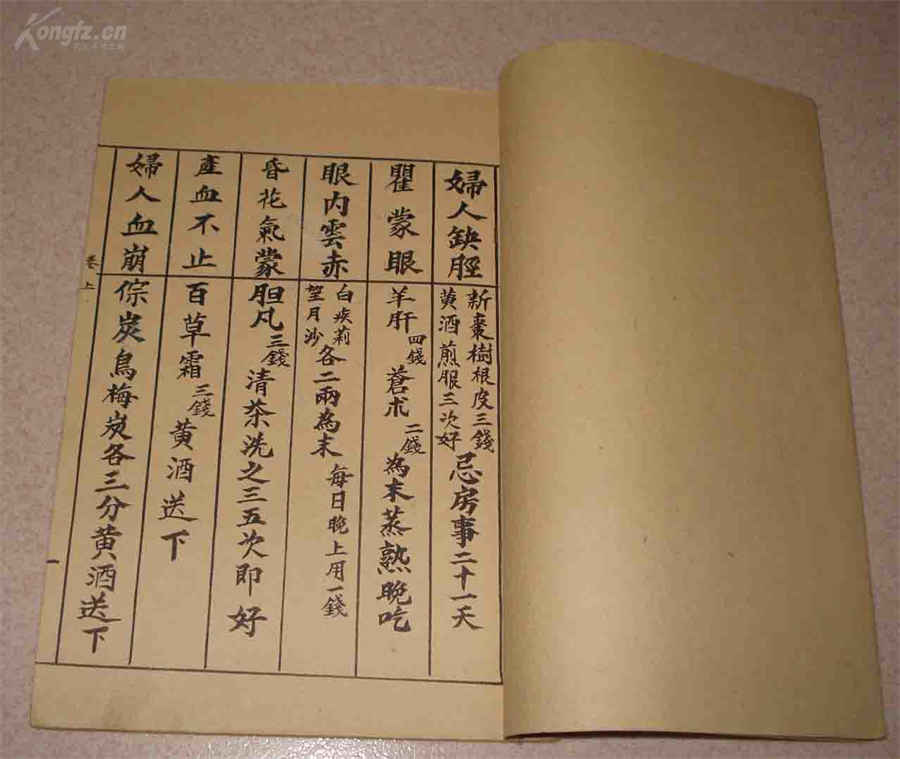 Kongfz.cn
婦人缺胫
新棗樹根皮三錢
黄酒煎服三次好
忌房事二十一天
瞿蒙眼
羊肝四錢蒼朮二錢為末蒸熟晚吃
眼内雲赤
白疾莉
望月沙
各二兩為末每日晚上用一錢
昏花氣蒙
胆凡三錢清茶洗之三五次即好
産血不止
百草霜三錢黄酒送下
婦人血崩
倧炭烏梅炭各三分黄酒送下
卷上
一